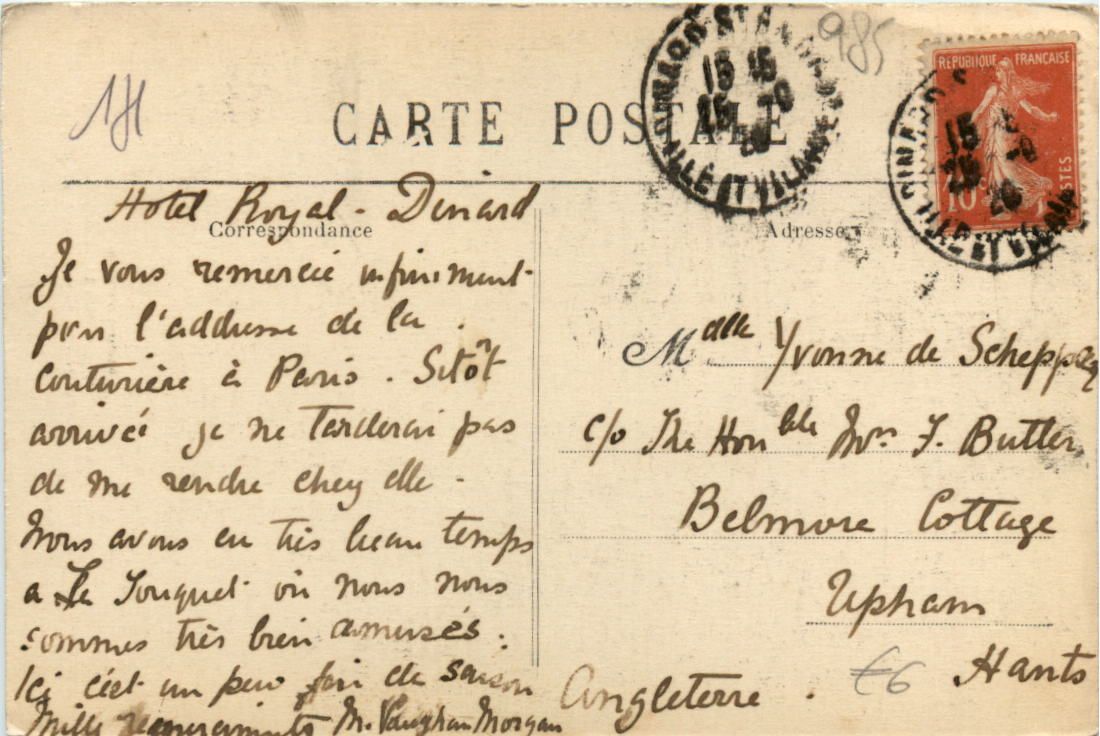 1H
985
CARTE POSTALE
DINARD ST
15 15
ILLE ET VILAINE
REPUBLIQUE FRANÇAISE
10
POSTES
Hotel Royal - Dinard
Correspondance
Adresse
Je vous remercie infiniment
pour l'addresse de la
couturière à Paris. Sitôt
arrivé je ne tarderai pas
de me rendre chez elle.
Nous avons eu très beau temps
a Le Touquet où nous nous
sommes très bien amusés.
Ici c'est un peu fin de saison
Mille remerciments M. Vaughan Morgan
Mdlle Yvonne de
c/o The Honble Mrs F. Butler
Belmore Cottage
Upham
Hants
Angleterre.
€6